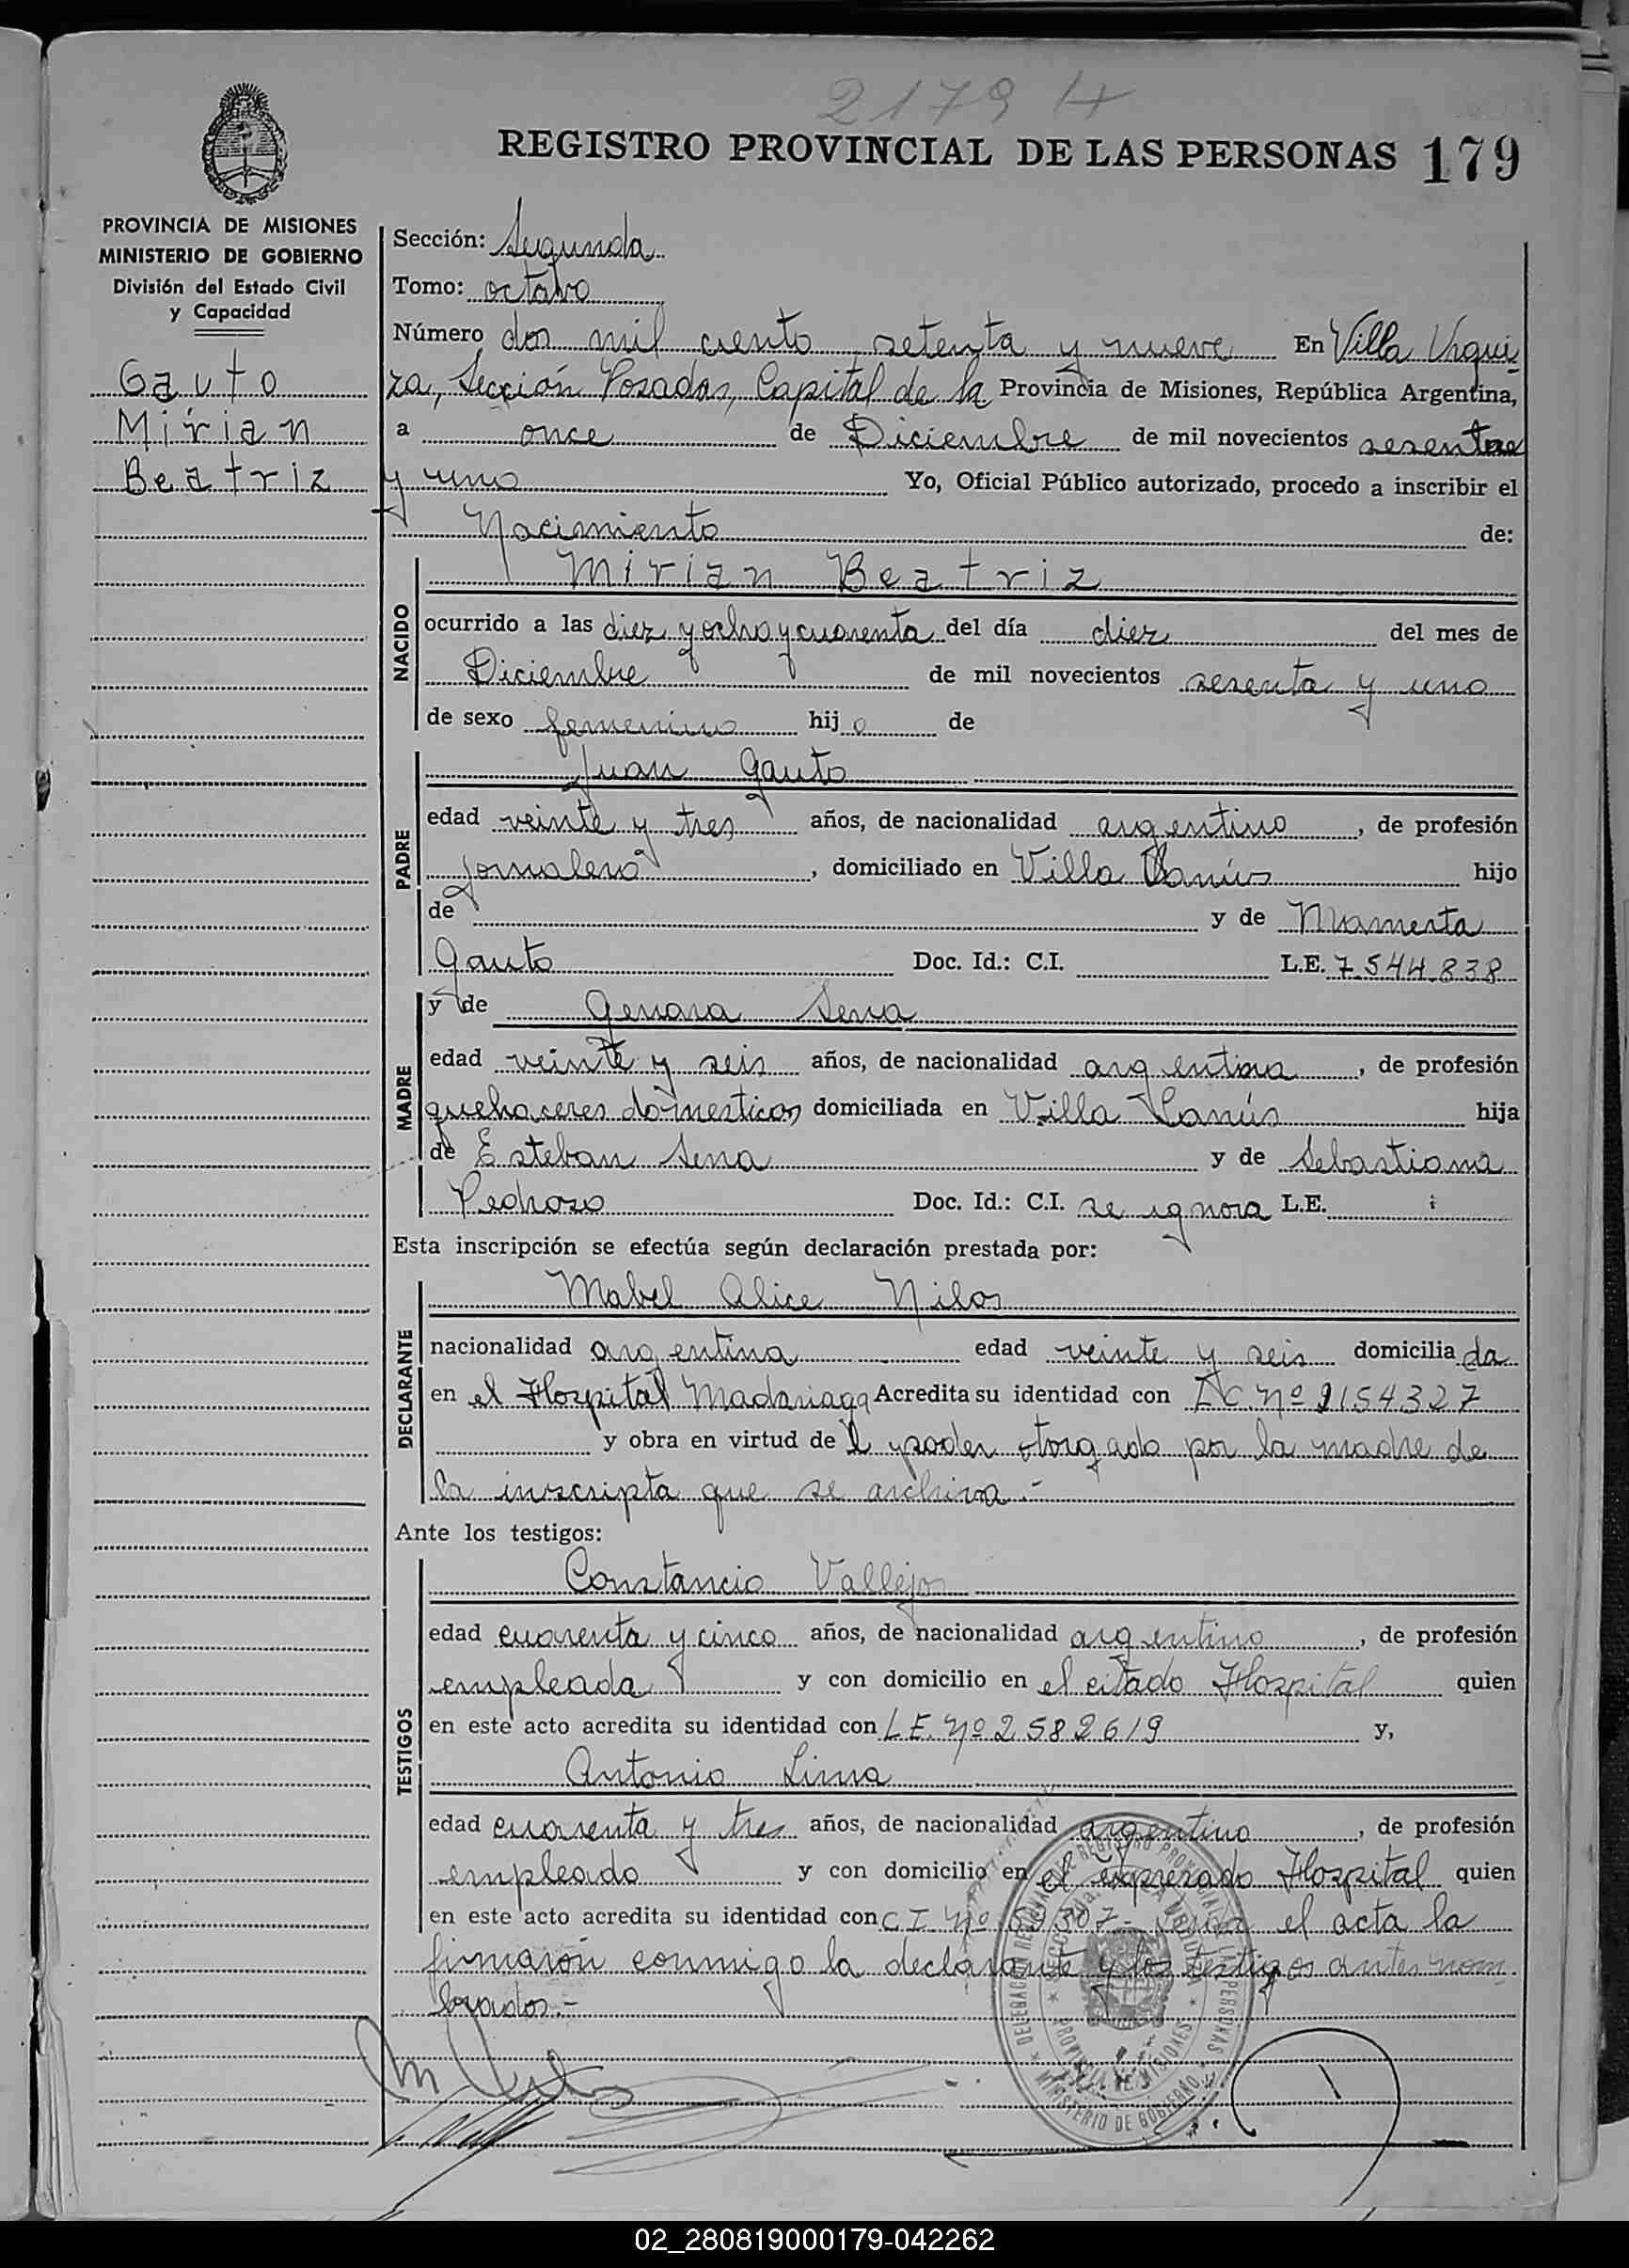 2179 H
REGISTRO PROVINCIAL DE LAS PERSONAS 179
PROVINCIA DE MISIONES
MINISTERIO DE GOBIERNO
División del Estado Civil
y Capacidad
Gauto
Mirian
Beatriz
Sección: Segunda
Tomo: octavo
Número dos mil ciento setenta y nueve En Villa Urqui-
za, Sección Posadas, Capital de la Provincia de Misiones, República Argentina,
a once de Diciembre de mil novecientos sesenta
y uno Yo, Oficial Público autorizado, procedo a inscribir el
Nacimiento de:
NACIDO
Mirian Beatriz
ocurrido a las diez y ocho y cuarenta del día diez del mes de
Diciembre de mil novecientos sesenta y uno
de sexo femenino hij a de
PADRE
Juan Gauto
edad veinte y tres años, de nacionalidad argentino, de profesión
jornalero, domiciliado en Villa Lanús hijo
de y de Mamerta
Gauto Doc. Id.: C.I. L.E. 7.544.838
MADRE
y de Genara Sena
edad veinte y seis años, de nacionalidad argentina, de profesión
quehaceres domesticos domiciliada en Villa Lanús hija
de Esteban Sena y de Sebastiana
Pedrozo Doc. Id.: C.I. se ignora L.E.
Esta inscripción se efectúa según declaración prestada por:
DECLARANTE
Mabel Alice Nilos
nacionalidad argentina edad veinte y seis domicilia da
en el Hospital Madariaga Acredita su identidad con L.C. Nº 9154327
y obra en virtud de l poder otorgado por la madre de
la inscripta que se archiva.-
Ante los testigos:
TESTIGOS
Constancio Vallejos
edad cuarenta y cinco años, de nacionalidad argentino, de profesión
empleada y con domicilio en el citado Hospital quien
en este acto acredita su identidad con L.E. Nº 2582619 y,
Antonio Lima
edad cuarenta y tres años, de nacionalidad argentino, de profesión
empleado y con domicilio en el expresado Hospital quien
en este acto acredita su identidad con C.I. Nº el acta la
firmaron conmigo la declarante y los testigos antes nom
brados.-
MINISTERIO DE GOBIERNO
PROVINCIA DE MISIONES
02_280819000179-042262